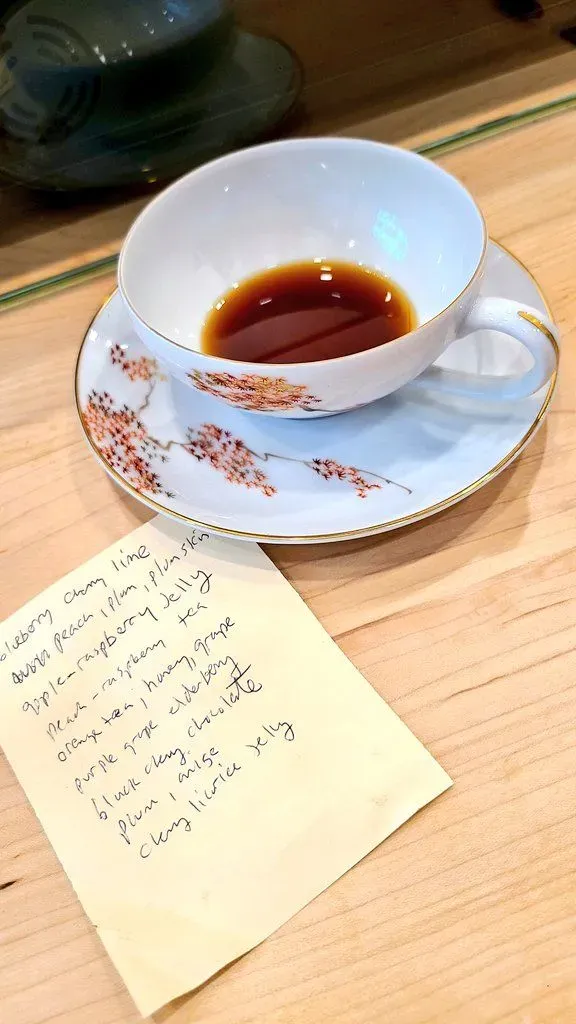 blueberry cherry lime
peach, plum, plum skin
apple-raspberry jelly
peach-raspberry tea
orange tea, honey, grape
purple grape elderberry
black cherry, chocolate
plum, anise
cherry licorice jelly